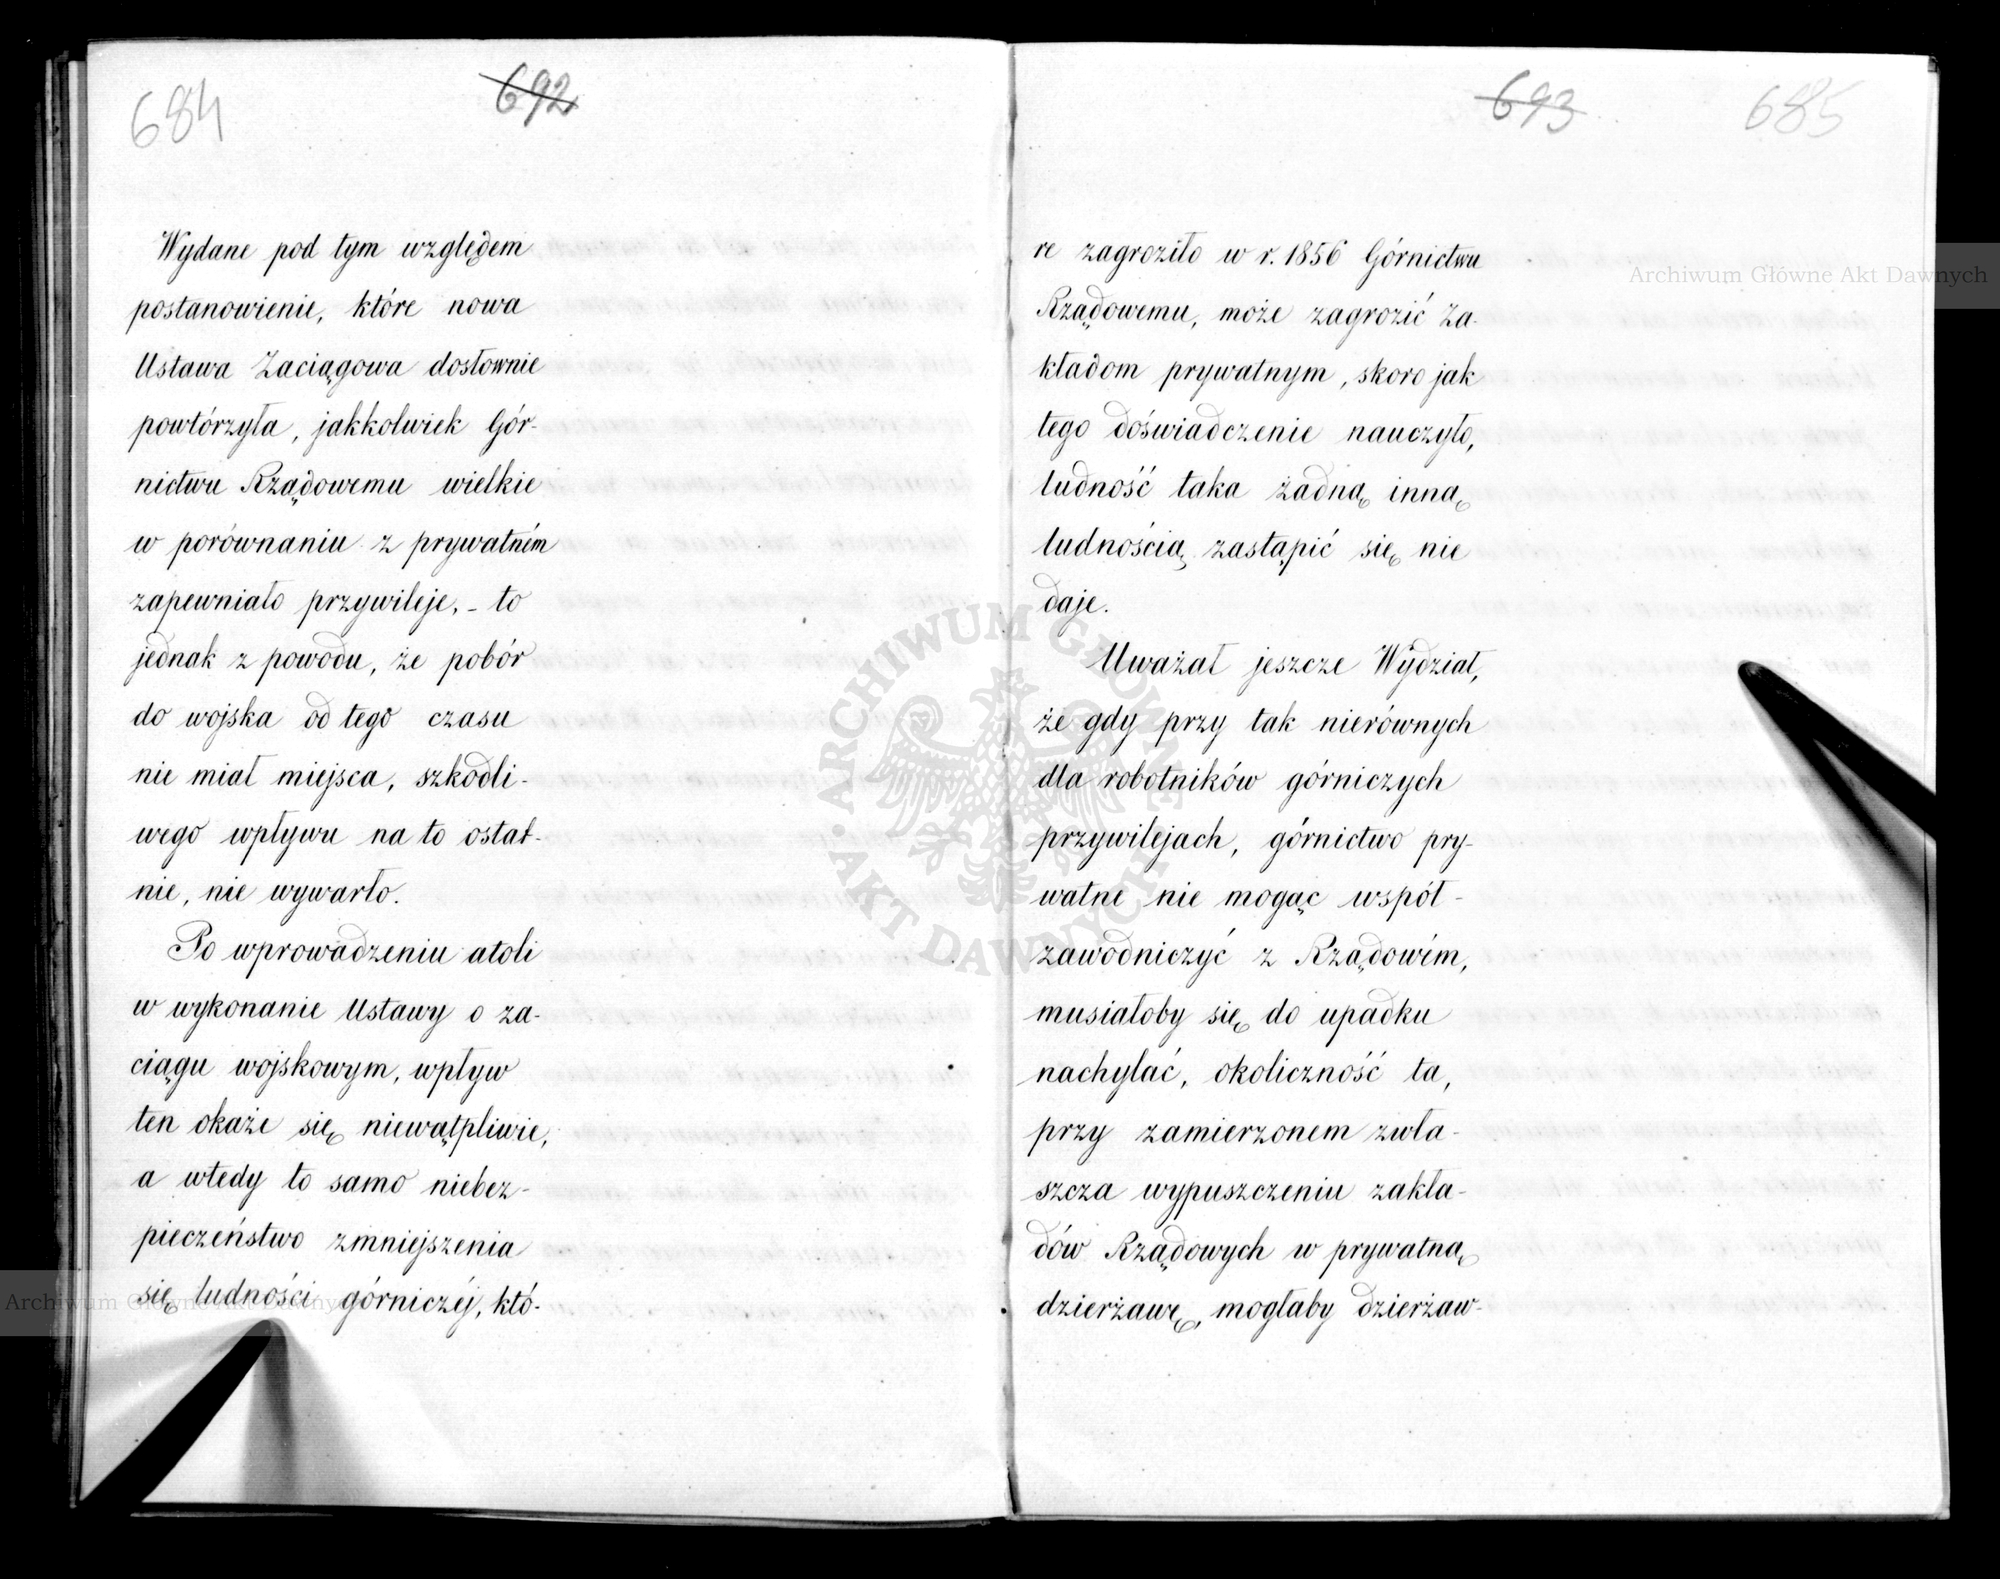 684
692
Wydane pod tym względem
postanowienie, które nowa
Ustawa Zaciągowa dosłownie
powtórzyła, jakkolwiek Gór-
nictwu Rządowemu wielkie
w porównaniu z prywatném
zapewniało przywileje, - to
jednak z powodu, że pobór
do wojska od tego czasu
nie miał miejsca, szkodli-
wego wpływu na to ostat-
nie, nie wywarło.
Po wprowadzeniu atoli
w wykonanie Ustawy o za-
ciągu wojskowym, wpływ
ten okaże się niewątpliwie,
a wtedy to samo niebez-
pieczeństwo zmniejszenia
się ludności górniczéj, któ-
693
685
re zagroziło w r. 1856 Górnictwu
Rządowemu, może zagrozić Za-
kładom prywatnym, skoro jak
tego doświadczenie nauczyło,
ludność taka żadną inną
ludnością zastąpić się nie
daje.
Uważał jeszcze Wydział,
że gdy przy tak nierównych
dla robotników górniczych
przywilejach, górnictwo pry-
watne nie mogąc współ-
zawodniczyć z Rządowém,
musiałoby się do upadku
nachylać, okoliczność ta,
przy zamierzonem zwła-
szcza wypuszczeniu zakła-
dów Rządowych w prywatną
dzierżawę, mogłaby dzierżaw-
Archiwum Główne Akt Dawnych
Archiwum Główne Akt Dawnych
ARCHIWUM GŁÓWNE AKT DAWNYCH